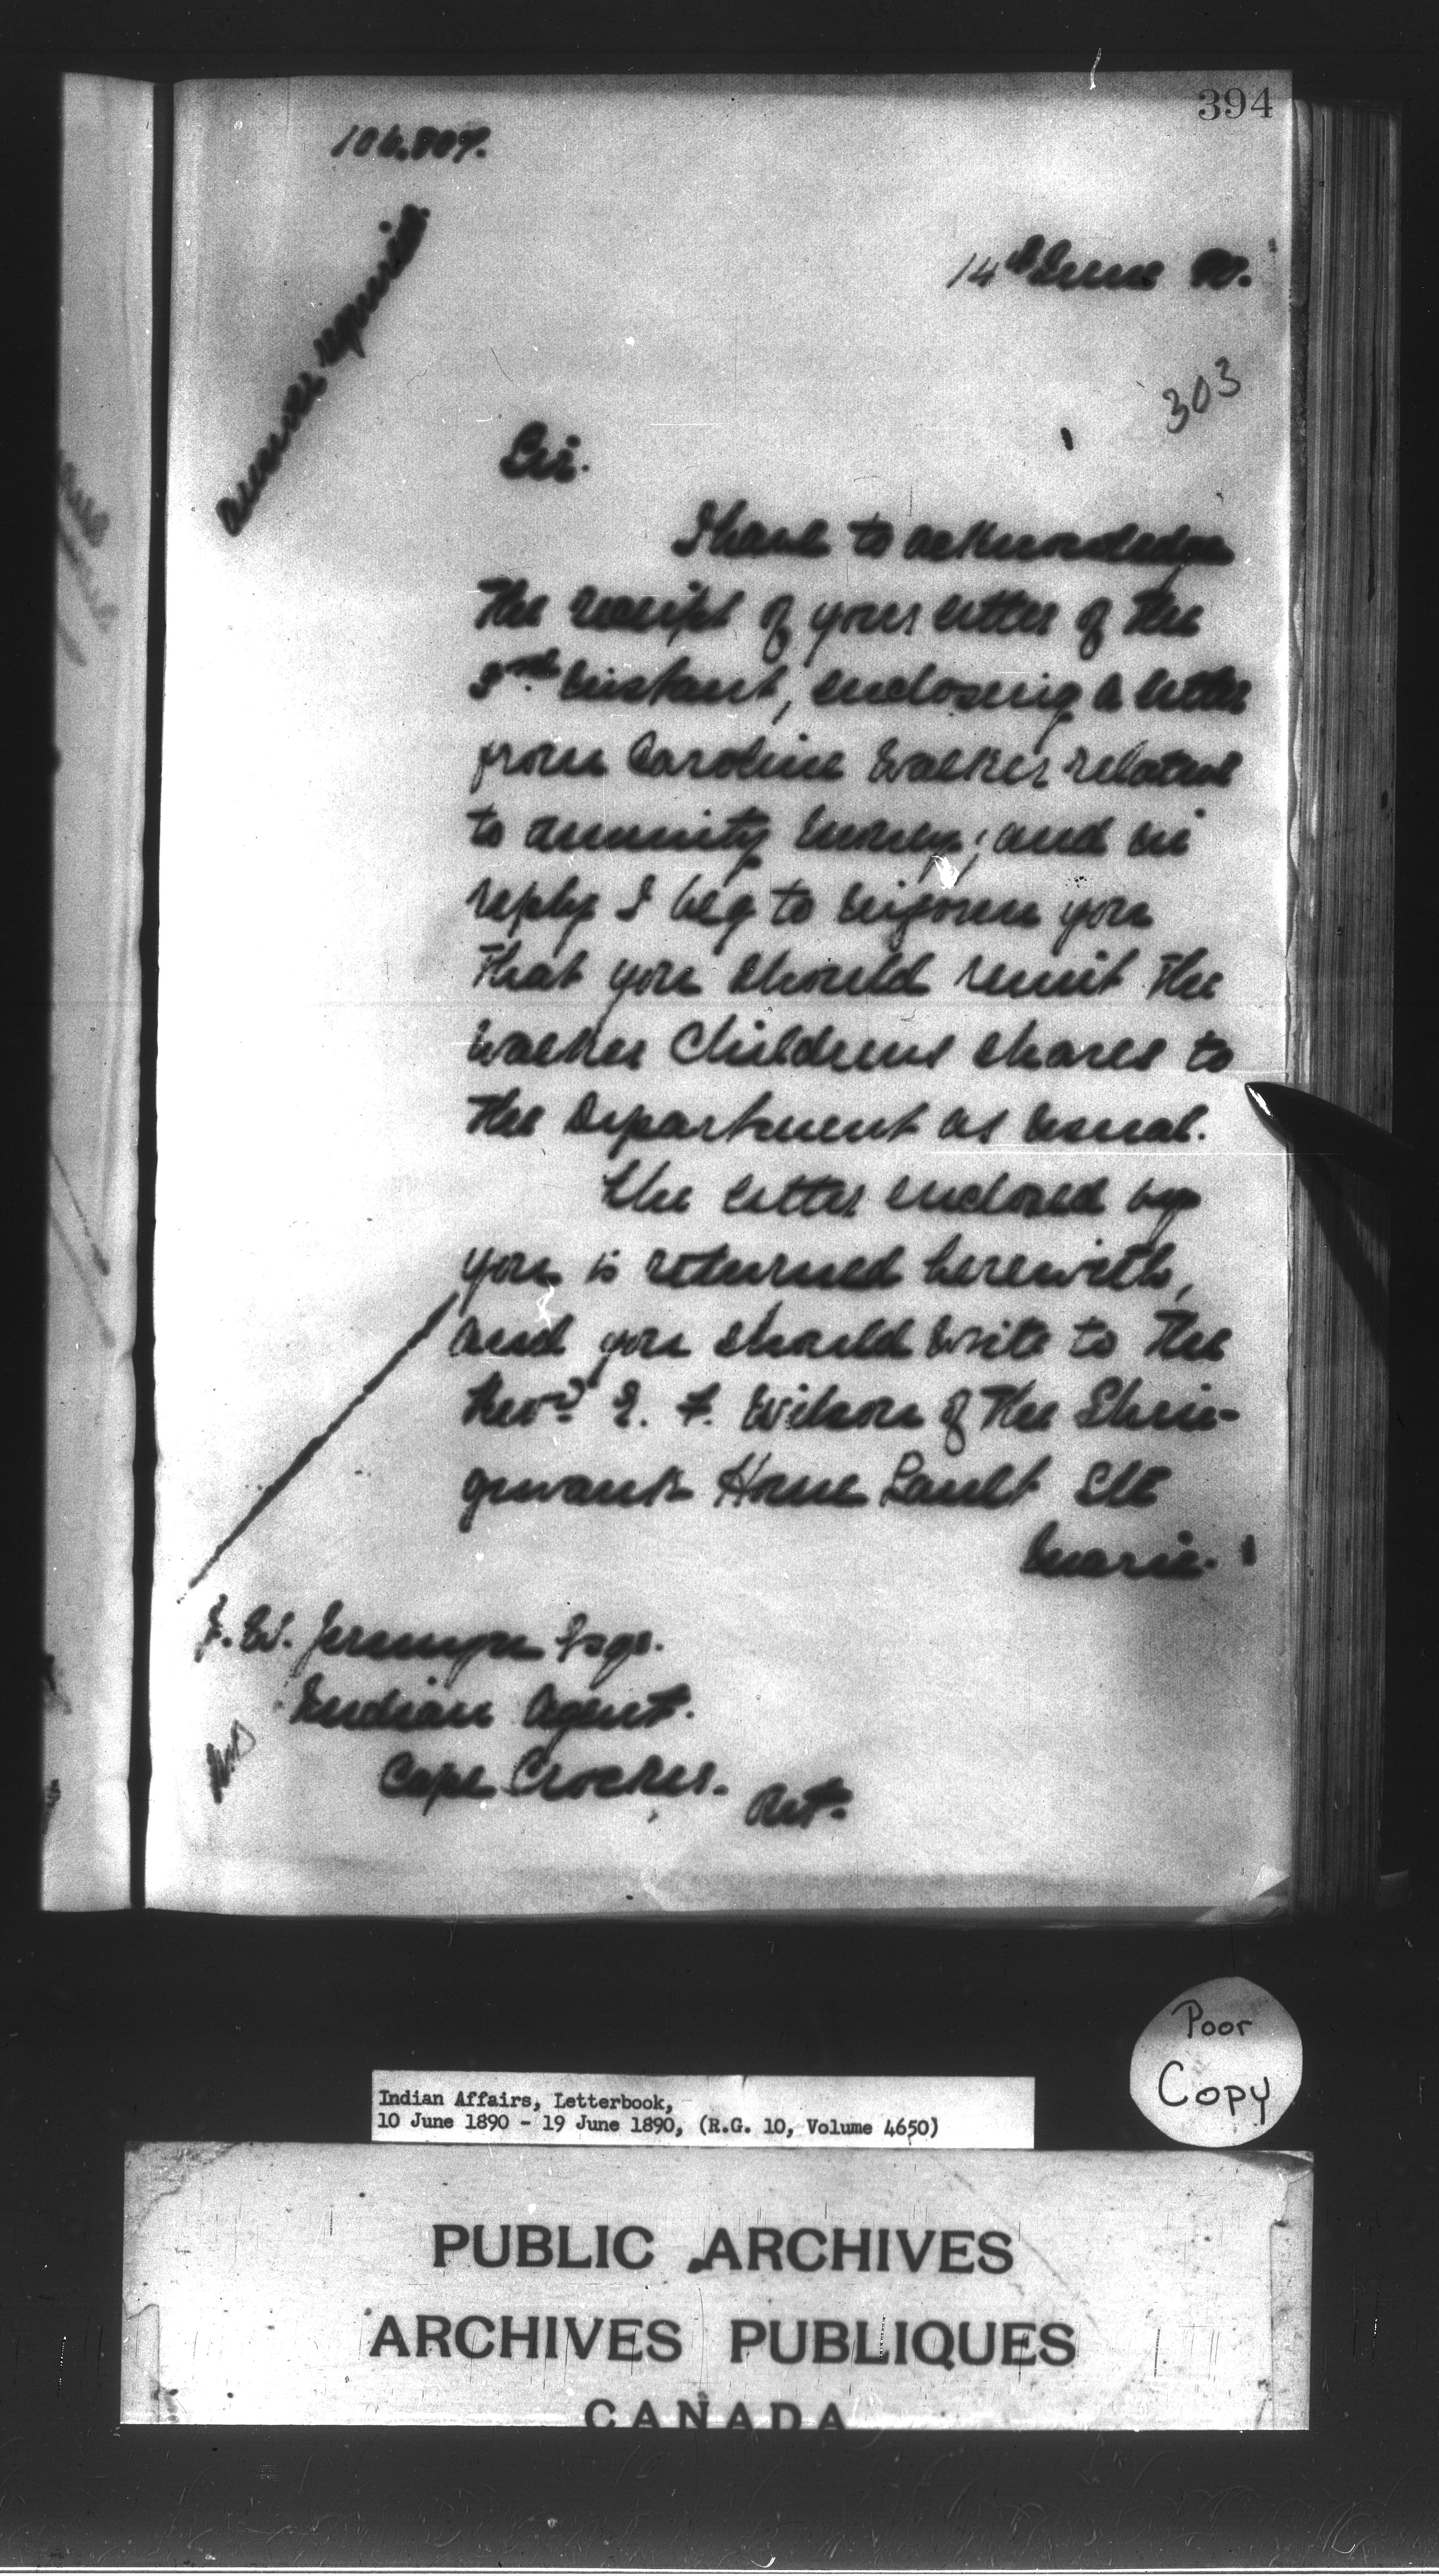 394
106.807.
14th June 90.
303
Sir.
I have to acknowledge
the receipt of your letter of the
3rd instant, enclosing a letter
from Caroline Walker relative
to annuity money; and in
reply I beg to inform you
that you should remit the
Walker Childrens shares to
the Department as usual.
The letter enclosed by
you is returned herewith,
and you should write to the
Revd. E. F. Wilson of the Shin-
gwauk Home Sault Ste
Marie.
J. W. Jermyn Esqr.
Indian Agent.
Cape Croker. Ont.
Poor
Copy
Indian Affairs, Letterbook,
10 June 1890 - 19 June 1890, (R.G. 10, Volume 4650)
PUBLIC ARCHIVES
ARCHIVES PUBLIQUES
CANADA